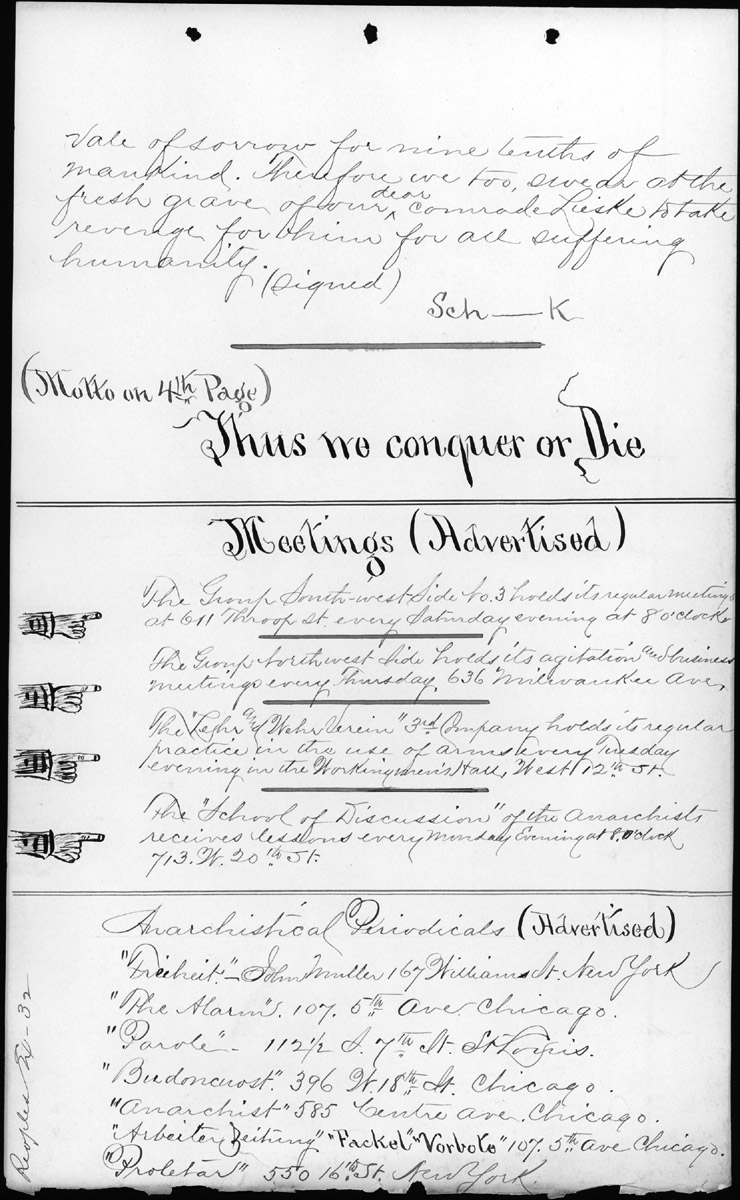 Vale of sorrow for nine tenths of
mankind. Therefore we too, swear at the
fresh grave of our dear comrade Lieske to take
revenge for him for all suffering
humanity.
(signed)
Sch—K
(Motto on 4th Page)
Thus we conquer or Die
Meetings (Advertised)
The Group South-west Side No. 3 holds its regular meetings
at 611 Throop St. every Saturday evening at 8 o'clock
The Group Northwest Side holds its agitation and business
meetings every Thursday, 636 Milwaukee Ave,
The "Lehr and Wehr Verein" 3rd Company holds its regular
practice in the use of arms every Tuesday
evening in the Workingmen's Hall, West 12th St.
The "School of Discussion" of the Anarchists
receives lessons every Monday Evening at 8. o'clock
713. W. 20th St.
Anarchistical Periodicals (Advertised)
"Freiheit."- John Muller 167 Williams St. New York
"The Alarm". 107. 5th Ave. Chicago.
"Parole" - 112 1/2 S. 7th St. St Louis.
"Budoncnost". 396 W. 18th St. Chicago.
"Anarchist" 585 Centre ave. Chicago.
"Arbeiter Zeitung" "Fackel" "Vorbote" 107. 5th Ave Chicago.
"Proletar" 550 16th St. New York.
Peoples Ex-32